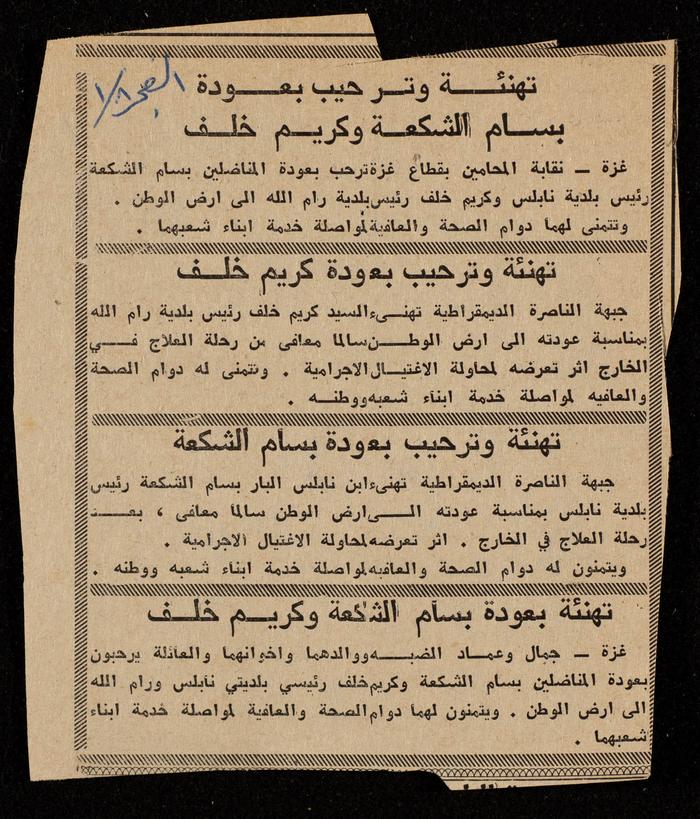 الفجر ١٠/٨
تهنئة وترحيب بعودة
بسام الشكعة وكريم خلف
غزة – نقابة المحامين بقطاع غزة ترحب بعودة المناضلين بسام الشكعة
رئيس بلدية نابلس وكريم خلف رئيس بلدية رام الله الى ارض الوطن .
وتتمنى لهما دوام الصحة والعافية لمواصلة خدمة ابناء شعبهما .
تهنئة وترحيب بعودة كريم خلف
جبهة الناصرة الديمقراطية تهنىء السيد كريم خلف رئيس بلدية رام الله
بمناسبة عودته الى ارض الوطن سالما معافى من رحلة العلاج في
الخارج اثر تعرضه لمحاولة الاغتيال الاجرامية . ونتمنى له دوام الصحة
والعافيه لمواصلة خدمة ابناء شعبه ووطنه .
تهنئة وترحيب بعودة بسام الشكعة
جبهة الناصرة الديمقراطية تهنىء ابن نابلس البار بسام الشكعة رئيس
بلدية نابلس بمناسبة عودته الى ارض الوطن سالما معافى ، بعد
رحلة العلاج في الخارج . اثر تعرضه لمحاولة الاغتيال الاجرامية .
ويتمنون له دوام الصحة والعافيه لمواصلة خدمة ابناء شعبه ووطنه .
تهنئة بعودة بسام الشكعة وكريم خلف
غزة – جمال وعماد الضبه ووالدهما واخوانهما والعائلة يرحبون
بعودة المناضلين بسام الشكعة وكريم خلف رئيسي بلديتي نابلس ورام الله
الى ارض الوطن . ويتمنون لهما دوام الصحة والعافية لمواصلة خدمة ابناء
شعبهما .